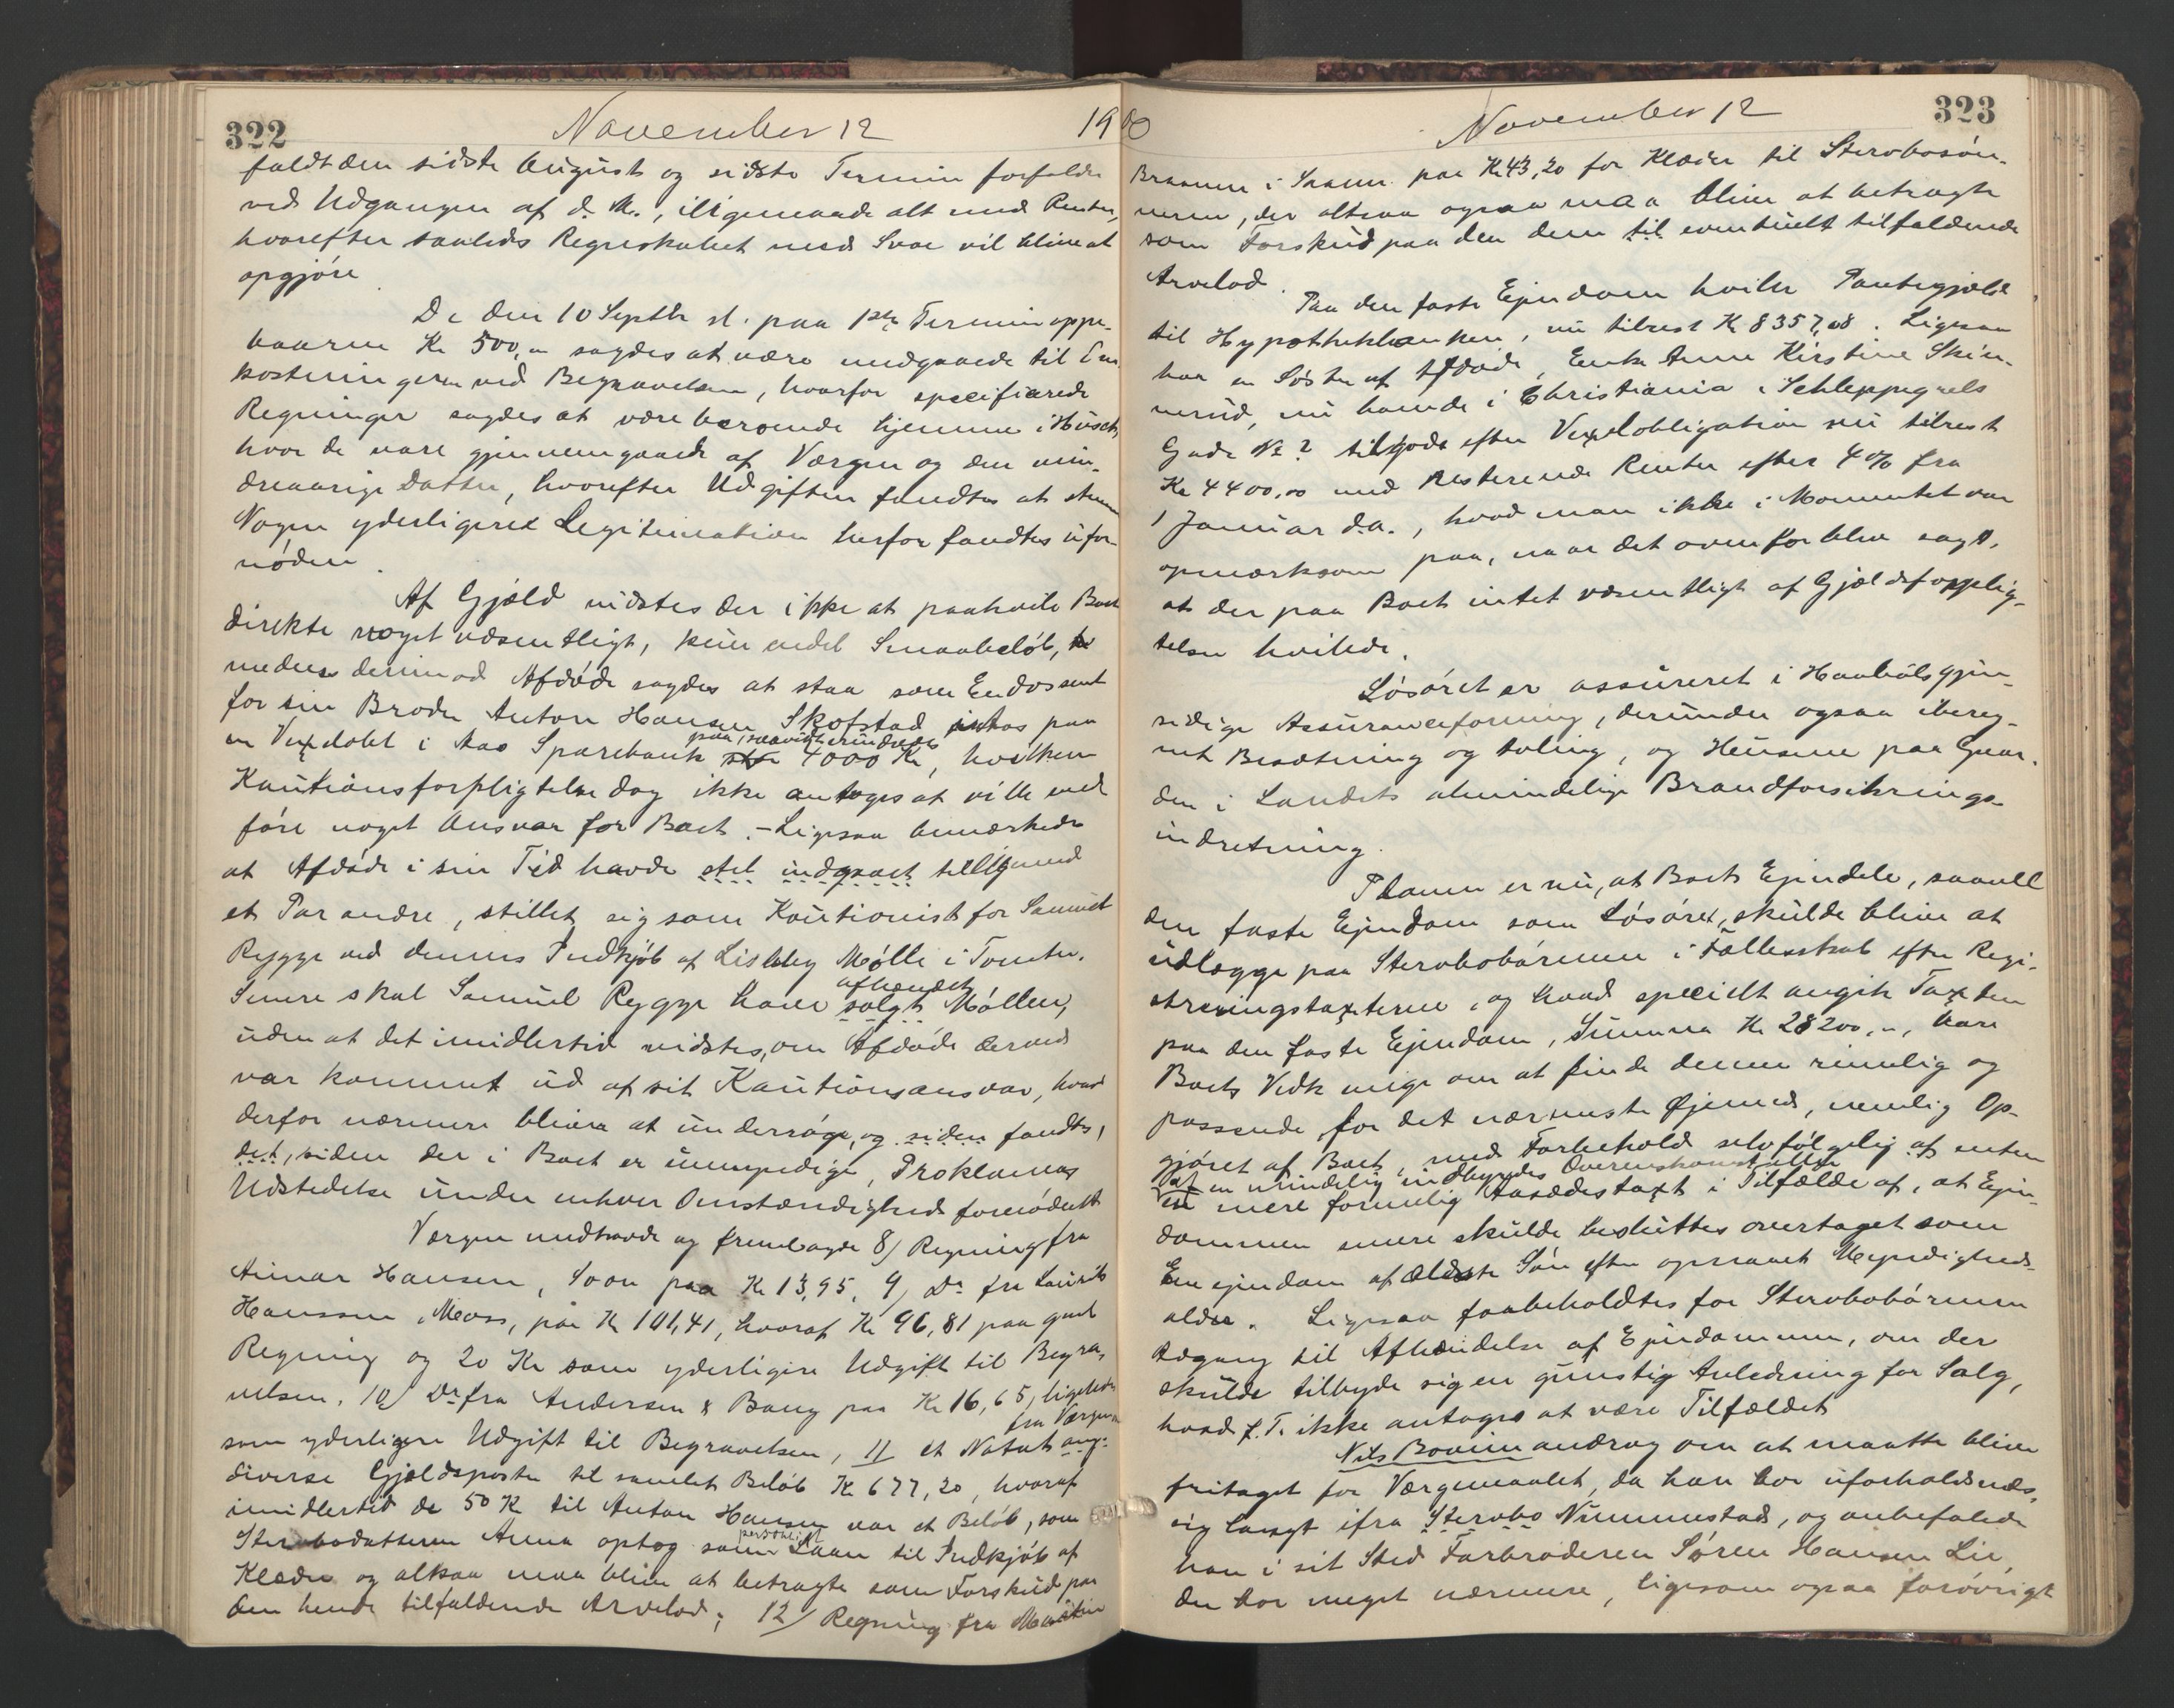 322 November 12 1900
faldt den sidste August og sidste Termin forfalder
ved Udgangen af d. M., iligemaade alt med Renter,
hvorefter saaledes Regnskabet med Svae vil blive at
opgjøre.
De den 10 Septbr st. paa 1ste Termin oppe-
baarne Kr 500,00 sagdes at være medgaaede til Om-
kostningerne ved Begravelsen, hvorfor specifiserede
Regninger sagdes at være beroende hjemme i Huset,
hvor de vare gjennemgaaede af Værgen og den min-
dreaarige Datter, hvorefter Udgiften fandtes at stemme
Nogen yderligere Legitimation herfor fandtes ufor-
nøden.
Af Gjæld vidstes der ikke at paahvile Boet
direkte noget væsentligt, kun endel Smaabeløb,
medens derimod Afdøde sagdes at staa som Endossent
for sin Broder Anton Hansen Skofstad paa
en Vexelobl i Aas Sparebank paa, saavidt erindredes 4000 Kr, hvilken
Kautionsforpligtelse dog ikke antoges at ville med
føre noget Ansvar for Boet. – Ligesaa bemærkedes
at Afdøde i sin Tid havde stel indgaaet tilligemed
et Par andre, stillet sig som Kautionist for Samuel
Rygge ved dennes Indkjøb af Lisleby Mølle i Tomter.
Senere skal Samuel Rygge have solgt afhændet Møllen,
uden at det imidlertid vidstes, om Afdøde derved
var kommet ud af sit Kautionsansvar, hvad
derfor nærmere bliver at undersøge, og siden fandtes,
det, siden der i Boet er umyndige, Proklamas
Udstedelse under enhver Omstændighed fornødent
Værgen medhavde og fremlagde 8) Regning fra
Aimar Hansen, Soon paa Kr 13,95, 9) Do fra Laurits
Hanssen, Moss, paa Kr 101,41, hvoraf Kr 96,81 paa gml
Regning og 20 Kr som yderligere Udgift til Begra-
velsen, 10) Do fra Andersen & Bang paa Kr 16,65, ligeledes
som yderligere Udgift til Begravelsen, 11 et Notat fra Værgen ang.
diverse Gjældsposter til samlet Beløb Kr 677,20, hvoraf
imidlertid de 50 Kr til Anton Hansen var et Beløb, som
Sterbodatteren Anna optog som personligt Laan til Indkjøb af
Klæder og altsaa maa blive at betragte som Forskud paa
den hende tilfaldende Arvelod; 12) Regning fra Martin
November 12 323
Braanen i Saaner paa Kr 43,20 for Klæder til Stervbosøn-
nerne, der altsaa ogsaa maa blive at betragte
som Forskud paa den dem til eventuelt tilfaldende
Arvelod.
Paa den faste Ejendom hviler Pantegjæld
til Hypothekbanken, nu tilrest Kr 8357,08. Ligesaa
har en Søster af Afdøde, Enke Anne Kirstine Skin-
nerud, nu boende i Christiania i Schleppegrels
Gade No ? tilgode efter Vexelobligation nu tilrest
Kr 4400,00 med resterende Renter efter 4% fra
1 Januar d.a., hvad man ikke i Momentet var
opmærksom paa, naar det ovenfor blev sagt,
at der paa Boet intet væsentligt af Gjældsforplig-
telser hvilede.
Løsøret er assureret i Haabøls gjen-
sidige Assuranceforening, derunder ogsaa ibereg-
net Besætning og Avling, og Husene paa Gaar-
den i Landets almindelige Brandforsikrings-
indretning.
Planen er nu, at Boets Ejendele, saavel
den faste Ejendom som Løsøret, skulde blive at
udlægge paa Stervbobørnene i Fællesskab efter Regi-
streringstaxterne, og hvad specielt angik Taxten
paa den faste Ejendom, Summa Kr 28200,00, vare
Boets Vedk enige om at finde denne rimelig og
passende for det nærmeste Øjemed, nemlig Op-
gjøret af Boet, med Forbehold selvfølgelig af enten
af en mindelig indbyrdes Overenskomst eller
en mere formelig Aasædestaxt i Tilfælde af, at Ejen-
dommen senere skulde besluttes overtaget som
Eneejendom af ældste Søn efter opnaaet Myndigheds-
alder. Ligesaa forbeholdtes for Stervbobørnene
Adgang til Afhændelse af Ejendommen, om der
skulde tilbyde sig en gunstig Anledning for Salg,
hvad f. T. ikke antages at være Tilfældet
Nils Bovim androg om at maatte blive
fritaget for Værgemaalet, da han bor uforholdsmæs-
sig langt ifra Stervbo Nummestad, og anbefalede
han i sit Sted Farbroderen Søren Hansen Lie,
der bor meget nærmere, ligesom ogsaa forøvrigt